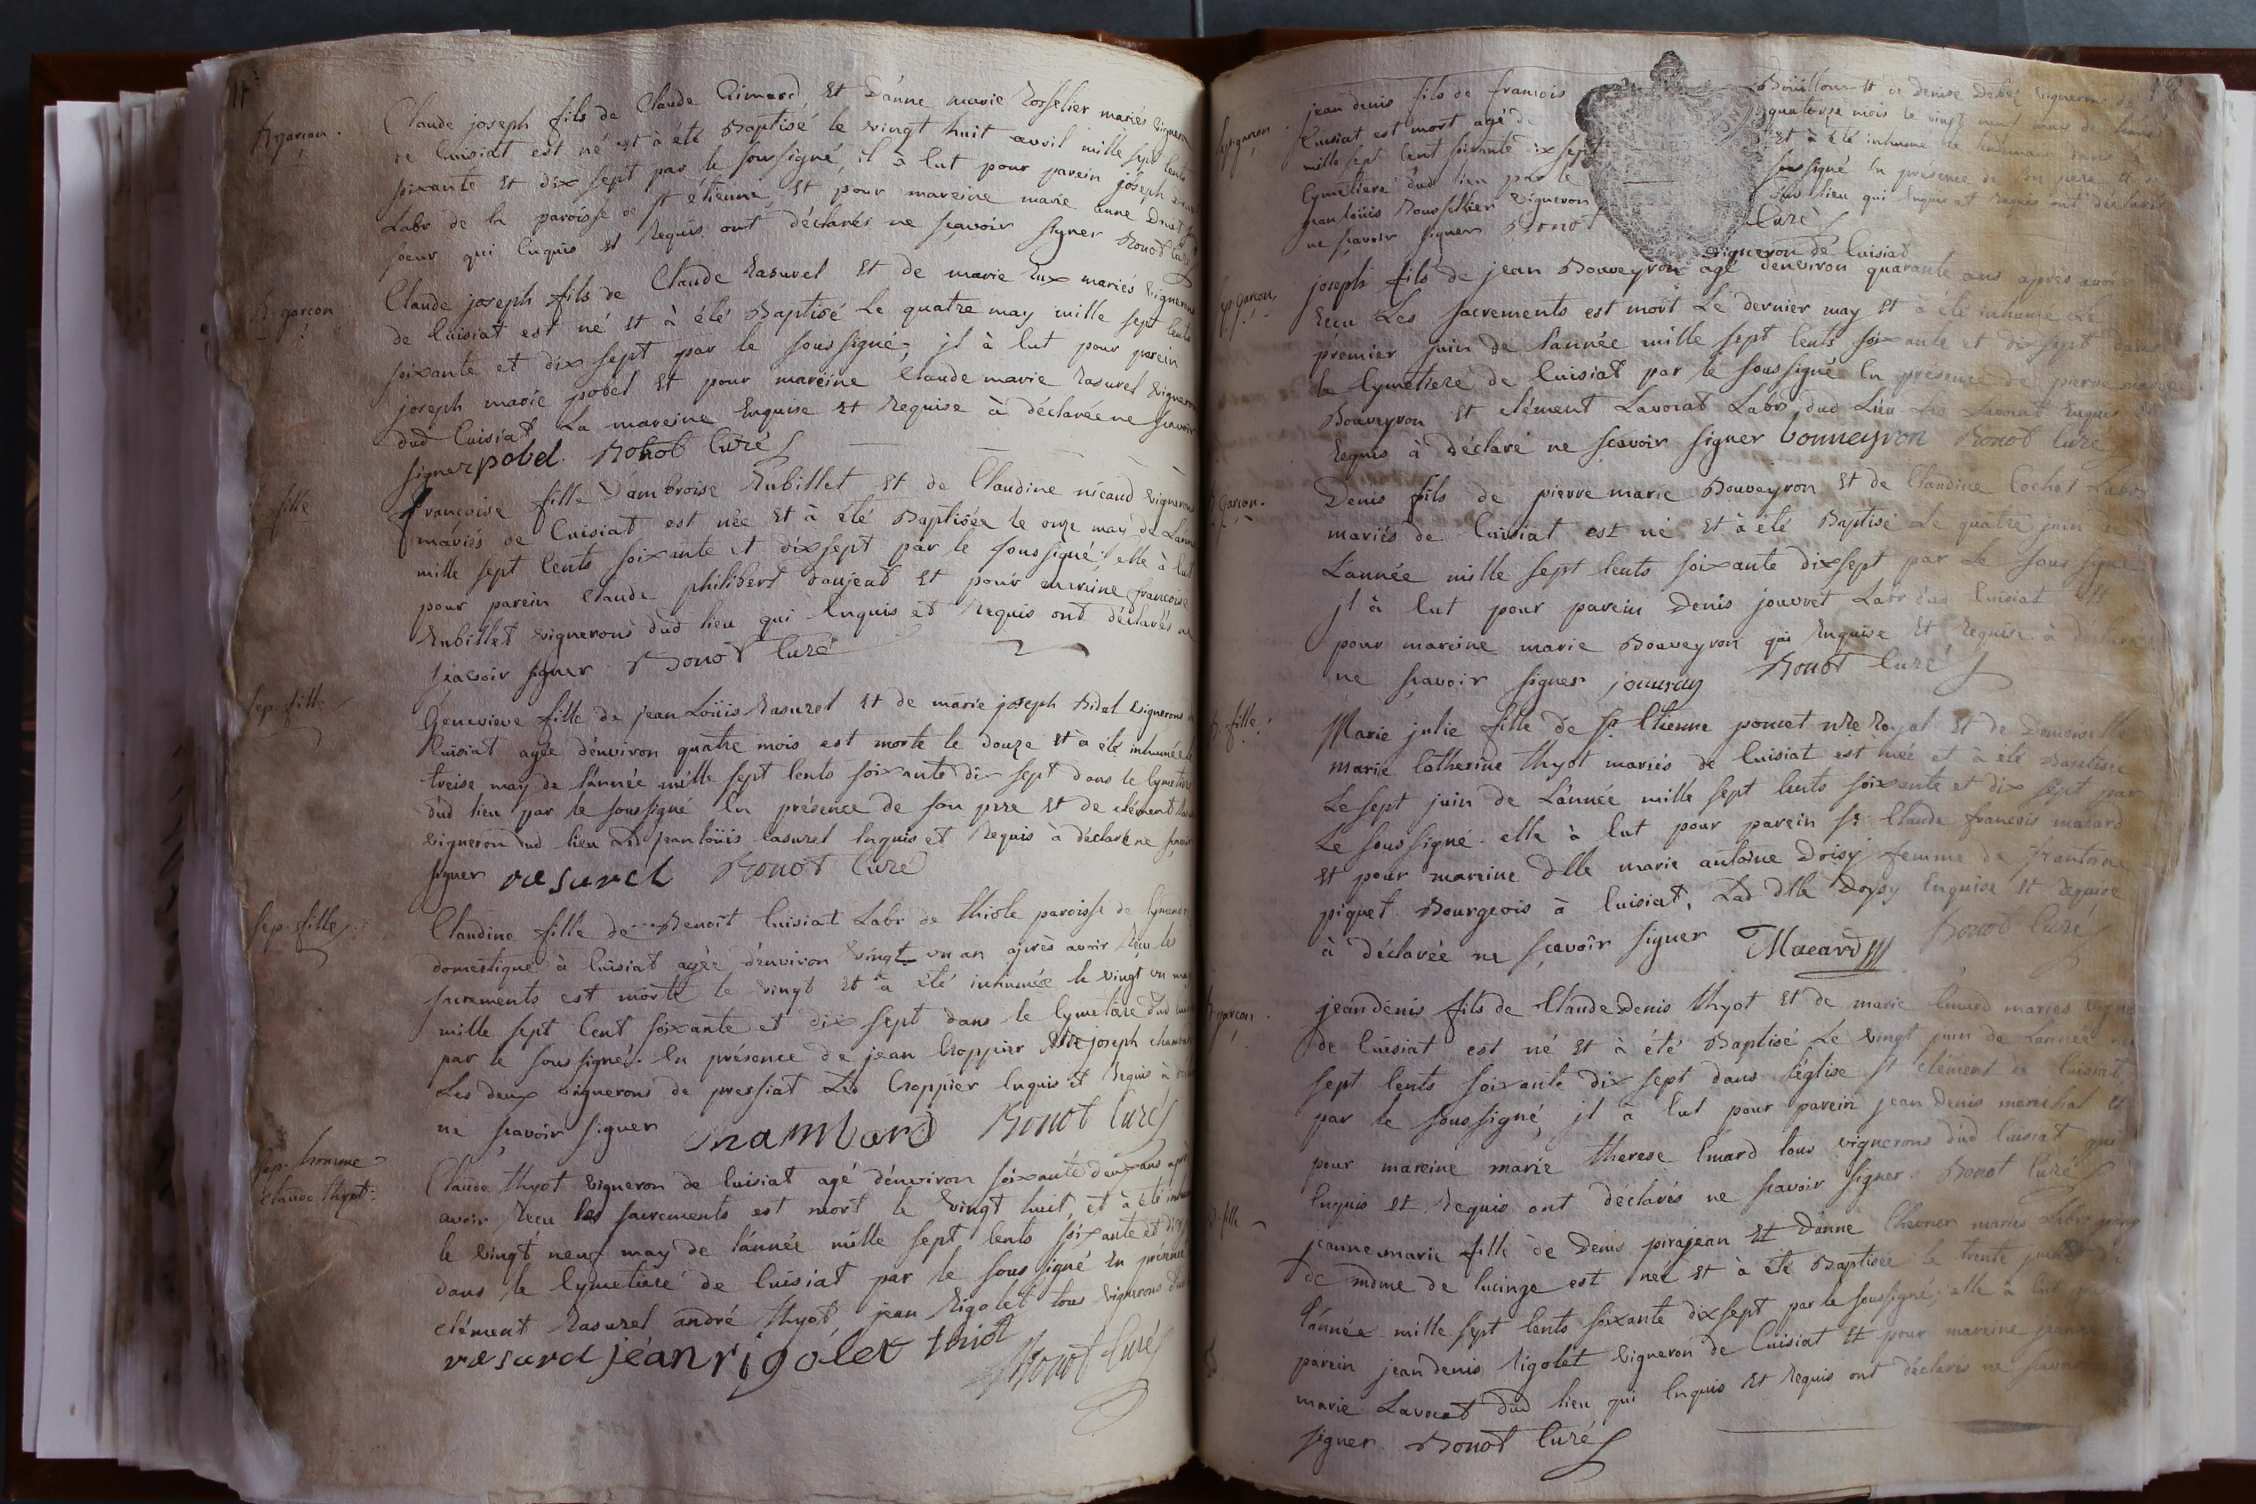 B. garçon.
Claude joseph fils de Claude Rimard Et D'anne marie Rosselier mariés vignerons
de Cuisiat est né et à été Baptisé le vingt huit avril mille sept Cents
soixante Et dix sept par le soussigné, il à Eut pour parein joseph
Labr de la paroisse de st étienne, Et pour mareine marie anne
soeur qui Enquis Et Requis ont déclarés ne sçavoir signer Bonot Curé
B. garçon
Claude joseph fils de Claude Rasurel Et de marie Rux mariés vignerons
de Cuisiat est né Et à été Baptisé Le quatre may mille sept Cents
soixante et dix sept par le soussigné, jl à Eut pour parein
joseph marie pobel Et pour mareine Claude marie Rasurel vignerons
dud Cuisiat La mareine Enquise Et Requise à déclarée ne sçavoir
signer pobel. Bonot Curé
fille
françoise fille D'ambroise Rubillet Et de Claudine nicaud vignerons
mariés de Cuisiat est née Et à été Baptisée le onze may de L'année
mille sept Cents soixante et dixsept par le soussigné, elle à Eut
pour parein Claude philibert Et pour mareine françoise
Rubillet vignerons dud lieu qui Enquis et Requis ont déclarés ne
sçavoir signer Bonot Curé
sep. fille
Genevieve fille de jean Loüis Rasurel Et de marie joseph Bidal vignerons
Cuisiat agée d'environ quatre mois est morte le douze Et à été inhumée le
treise may de l'année mille sept Cents soixante dix sept dans le Cymetiere
dud lieu par le soussigné En présence de son pere Et de clément
vigneron dud lieu Led jean loüis Rasurel Enquis et Requis à déclaré ne sçavoir
signer rasurel Bonot Curé
sep. fille
Claudine fille de Benoît Cuisiat Labr de thiole paroisse de
domestique à Cuisiat agée d'environ vingt un an après avoir Reçu les
sacrements est morte le vingt Et à été inhumée le vingt un may
mille sept Cent soixante et dix sept dans le Cymetiere dud
par le soussigné. En présence de jean Croppier Et de joseph
Les deux vignerons de pressiat Led Croppier Enquis et Requis à
ne sçavoir signer Bonot Curé
sep. homme
Claude thyot.
Claude thyot vigneron de Cuisiat agé d'environ soixante deux ans après
avoir Reçu les sacrements est mort le vingt huit, et à été inhumé
le vingt neuf may de l'année mille sept Cents soixante et dix
dans le Cymetiere de Cuisiat par le soussigné En présence
clément Rasurel andré thyot jean Rigolet tous vignerons dud
rasurel jean rigolet thiot
Bonot Curé
18
sep. garçon
jean denis fils de françois Boüillon Et de Denise vigneron de
Cuisiat est mort agé de quatorse mois le vingt neuf may de l'année
mille sept Cent soixante dix sept Et à été inhumé le dans le
Cymetiere dud lieu par le soussigné En présence de son pere Et de
jean loüis Rousselier vigneron dud lieu qui Enquis et Requis ont déclarés
ne sçavoir signer Bonot Curé
vigneron de Cuisiat
sep. garçon
joseph fils de jean Bouveyron agé d'environ quarante ans après avoir
Reçu Les sacrements est mort Le dernier may Et à été inhumé Le
premier juin de l'année mille sept Cents soixante et dix sept dans
le Cymetiere de Cuisiat par le soussigné En présence de pierre marie
Bouveyron Et clément Lavocat Labrs dud Lieu Led Lavocat Enquis Et
Requis à déclaré ne sçavoir signer bouveyron Bonot Curé
B. garçon.
Denis fils de pierre marie Bouveyron Et de Claudine Cochet Labrs
mariés de Cuisiat est né Et à été Baptisé Le quatre juin de
L'année mille sept Cents soixante dixsept par Le soussigné
jl à Eut pour parein Denis jouvret Labr dud Cuisiat Et
pour mareine marie Bouveyron qui Enquise Et Requise à déclarée
ne sçavoir signer Bonot Curé
B. fille.
Marie julie fille de sr Etienne poncet nre Royal Et de Demoiselle
marie Catherine thyot mariés de Cuisiat est née et à été Baptisée
Le sept juin de L'année mille sept Cents soixante et dix sept par
Le soussigné. elle à Eut pour parein sr Claude françois macard
Et pour mareine dlle marie antoine Doisy femme de sr antoine
piquet Bourgeois à Cuisiat, Lad dlle Doysy Enquise Et Requise
à déclarée ne sçavoir signer Macard Bonot Curé
B. garçon.
jean denis fils de Claude Denis thyot Et de marie Emard mariés vignerons
de Cuisiat est né Et à été Baptisé Le vingt juin de L'année mille
sept Cents soixante dix sept dans l'église st clément de Cuisiat
par le soussigné, jl à Eut pour parein jean Denis marechal Et
pour mareine marie therese Emard tous vignerons dud Cuisiat qui
Enquis Et Requis ont déclarés ne sçavoir signer. Bonot Curé
B. fille
jeanne marie fille de Denis pirajean Et D'anne mariés
de de Cuisiat est née Et à été Baptisée le trente juin de
l'année mille sept Cents soixante dixsept par le soussigné, elle à Eut pour
parein jean denis Rigolet vigneron de Cuisiat Et pour mareine jeanne
marie Lavocat dud lieu qui Enquis Et Requis ont déclarés ne sçavoir
signer Bonot Curé